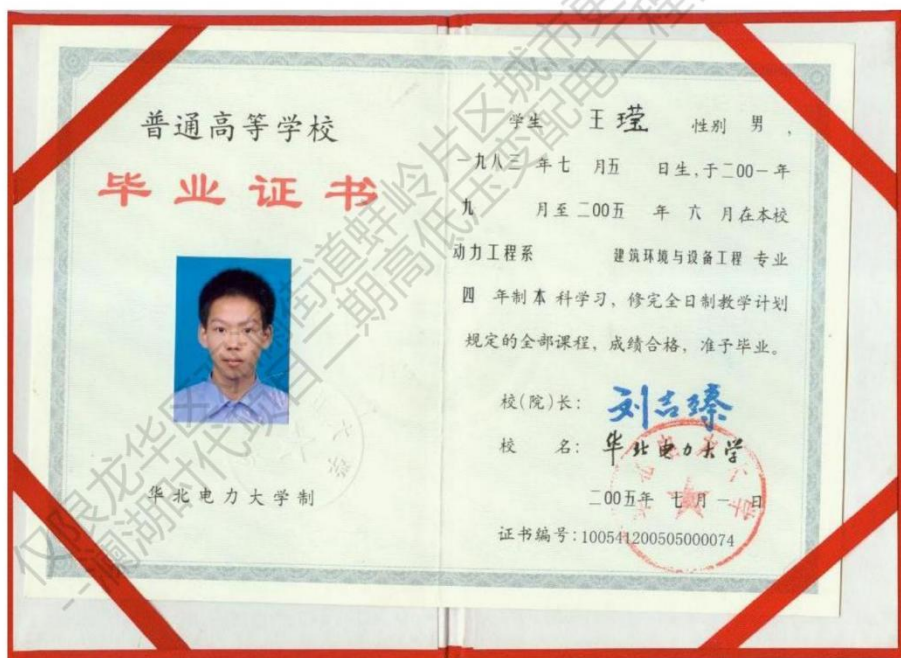 普通高等学校
毕业证书
华北电力大学制
学生 王瀅 性别 男,
一九八三 年七 月五 日生,于二00一年
九 月至二00五 年 六 月在本校
动力工程系 建筑环境与设备工程 专业
四 年制本科学习,修完全日制教学计划
规定的全部课程,成绩合格,准予毕业。
校(院)长: 刘吉臻
校 名: 华北电力大学
二00五年 七月 一 日
证书编号:100541200505000074